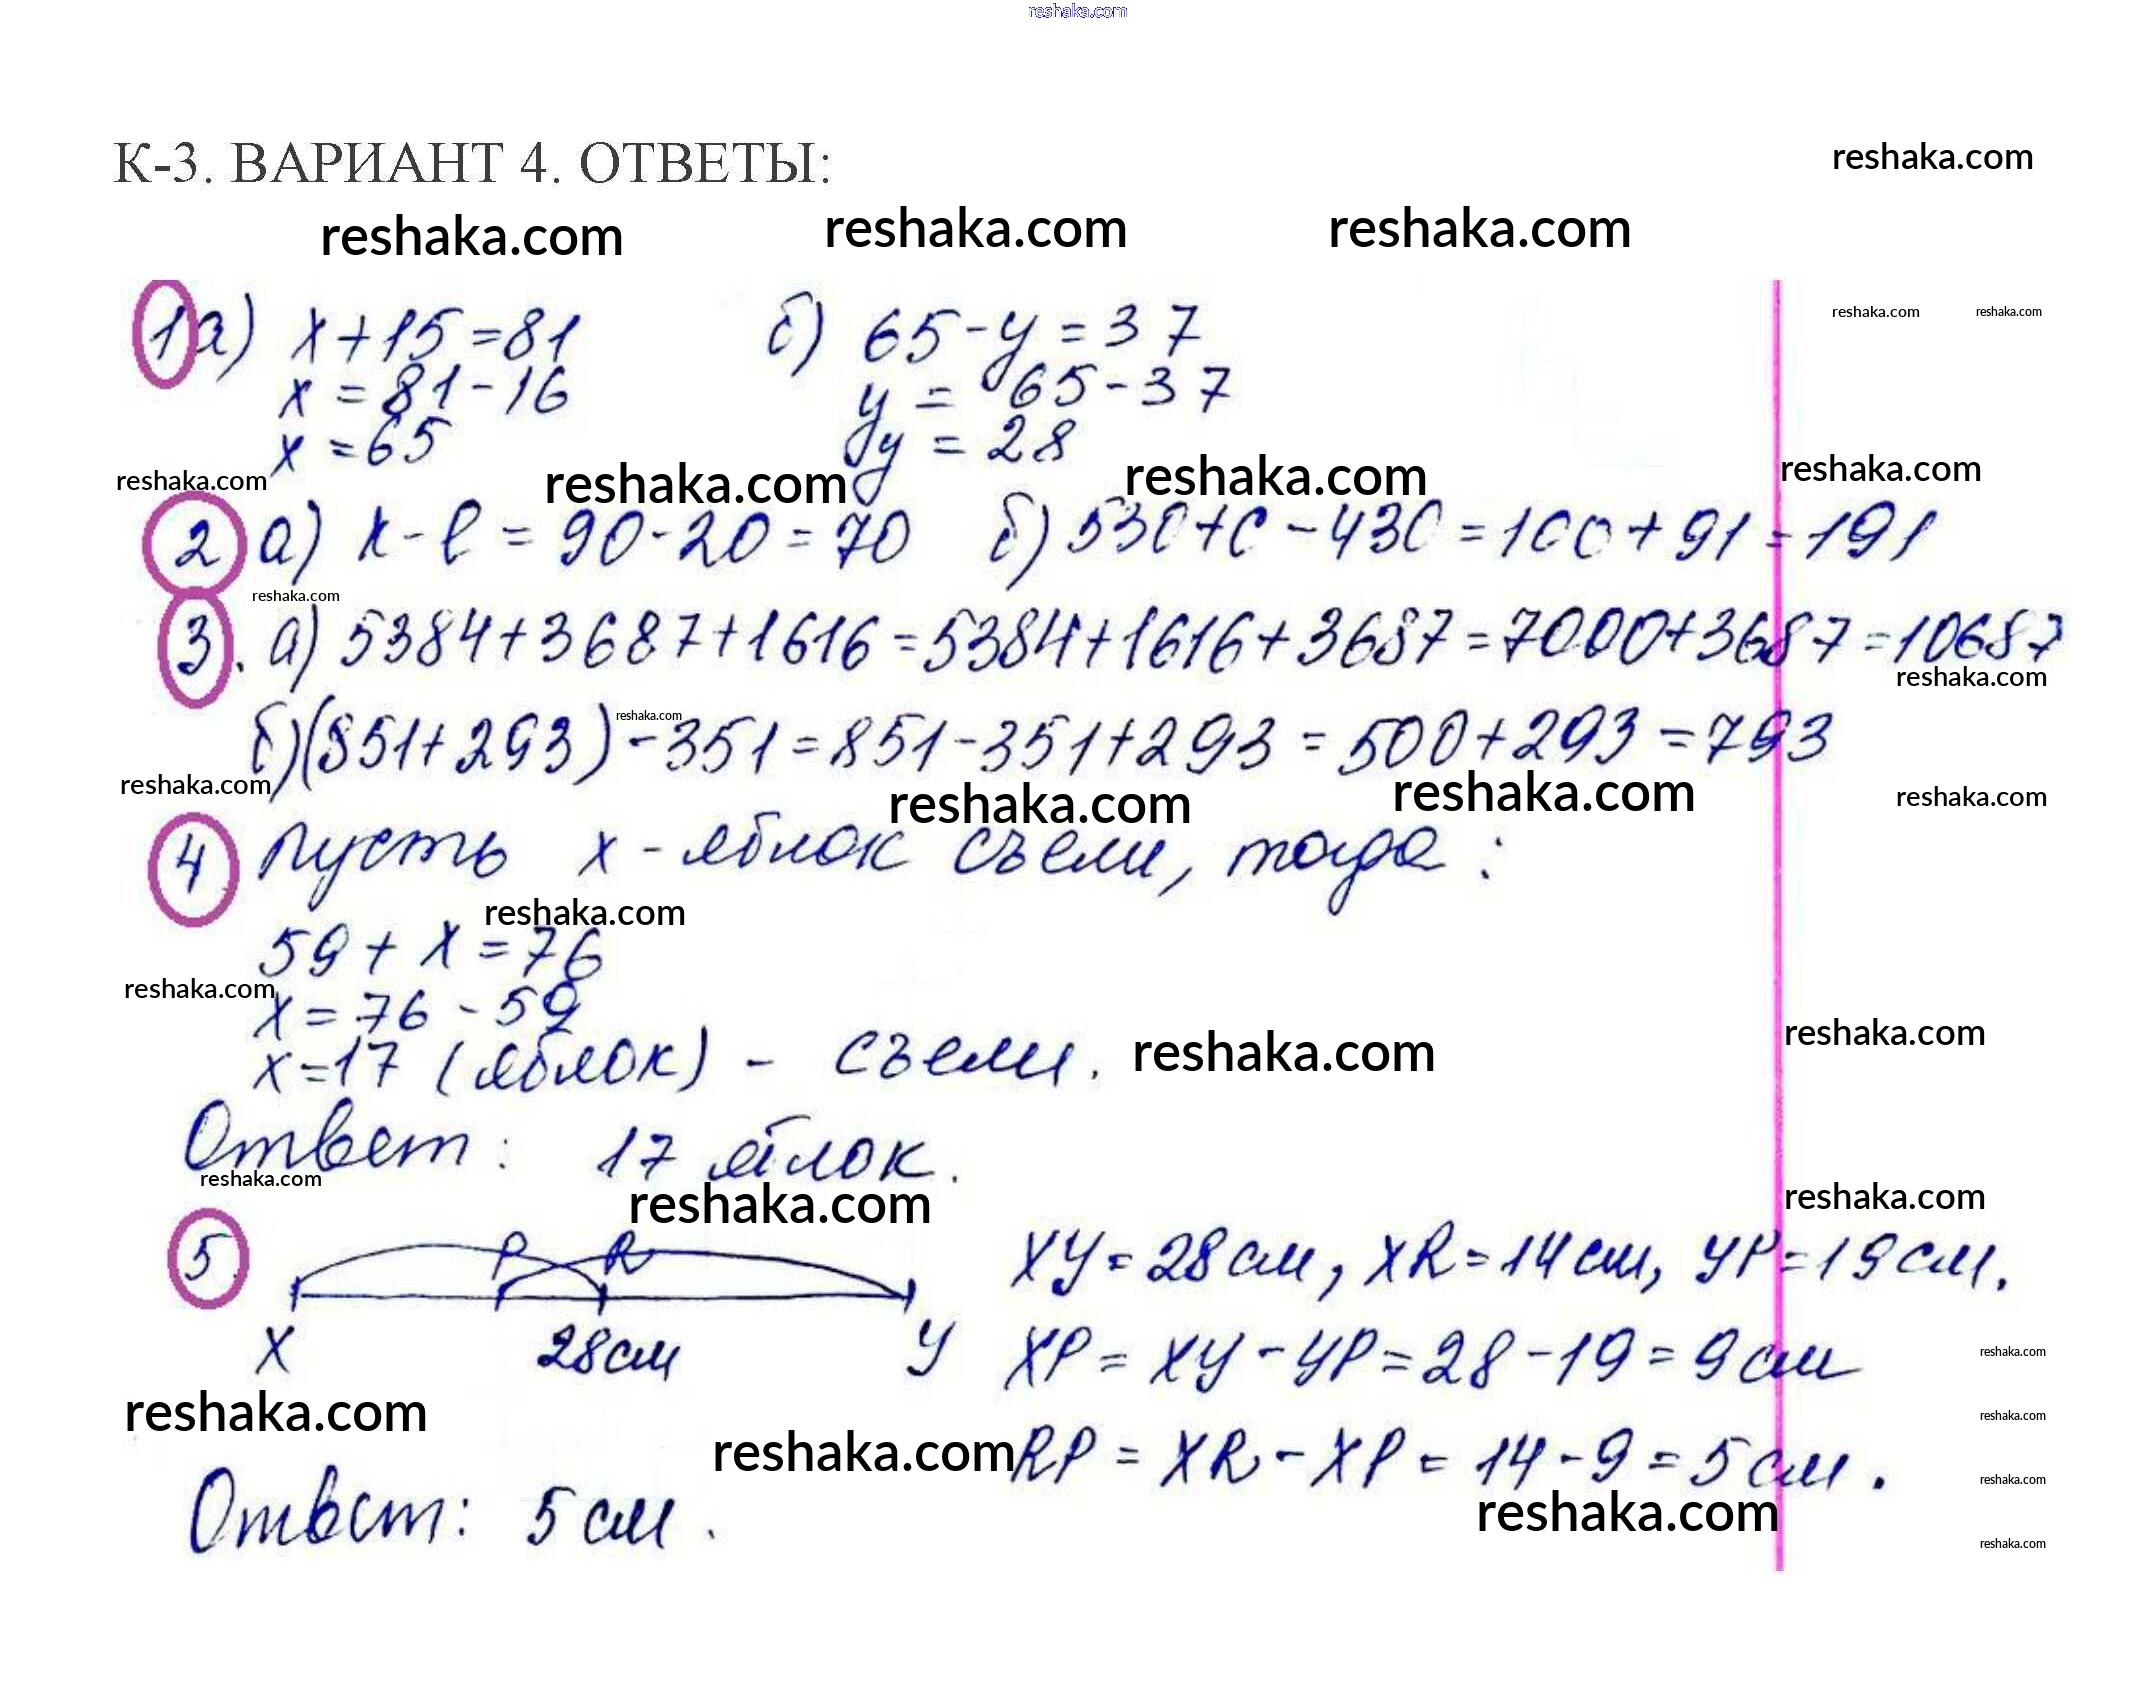 reshaka.com
К-3. ВАРИАНТ 4. ОТВЕТЫ:
reshaka.com
reshaka.com reshaka.com reshaka.com
1 а) x + 15 = 81 б) 65 - y = 37
reshaka.com reshaka.com
x = 81 - 16 y = 65 - 37
x = 65 y = 28
reshaka.com reshaka.com reshaka.com reshaka.com
2 а) k - l = 90 - 20 = 70 б) 530 + c - 430 = 100 + 91 = 191
reshaka.com
3. а) 5384 + 3687 + 1616 = 5384 + 1616 + 3687 = 7000 + 3687 = 10687
reshaka.com
б) (851 + 293) - 351 = 851 - 351 + 293 = 500 + 293 = 793
reshaka.com
reshaka.com reshaka.com reshaka.com reshaka.com
4 Пусть x - яблок съели, тогда:
reshaka.com
59 + x = 76
reshaka.com
x = 76 - 59
x = 17 (яблок) - съели.
reshaka.com reshaka.com
Ответ: 17 яблок.
reshaka.com reshaka.com reshaka.com
5 P R XY = 28 см, XR = 14 см, YP = 19 см.
X 28 см Y XP = XY - YP = 28 - 19 = 9 см
reshaka.com
reshaka.com reshaka.com
reshaka.com RP = XR - XP = 14 - 9 = 5 см.
reshaka.com
Ответ: 5 см.
reshaka.com
reshaka.com